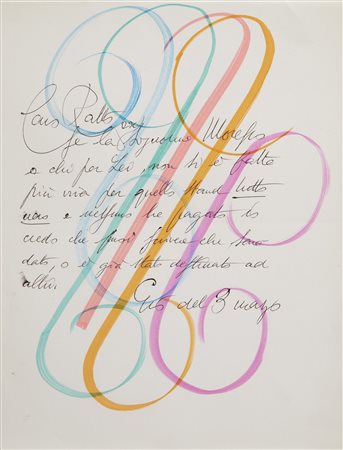 Caro Ballo
Se la Signorina Moreses
o chi per Lei, non si è fatto
più viva per quello stand tutto
nero e nessuno ha pagato io
credo che puoi scrivere che sono
dato, o è già stato destinato ad
altri,
del 3 marzo